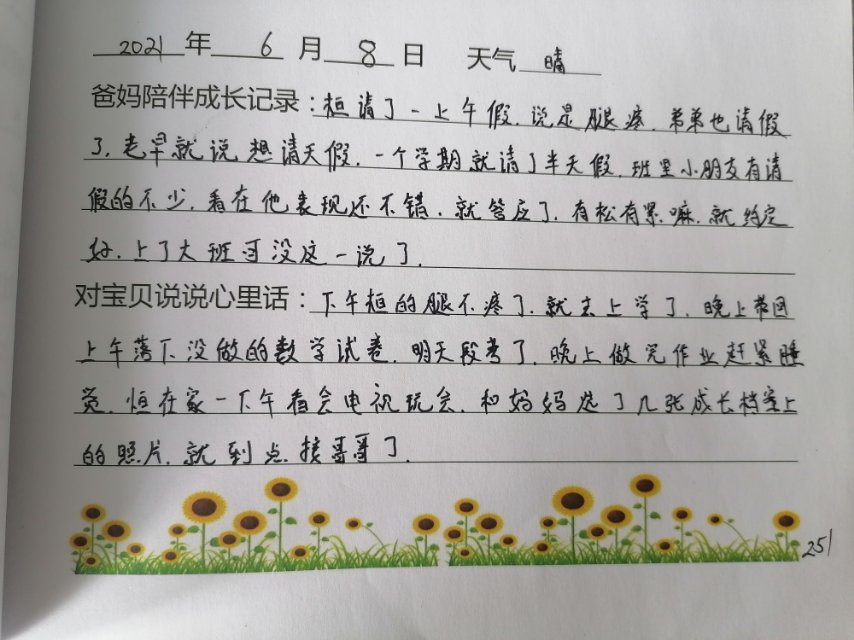 2021年 6月 8日 天气 晴
爸妈陪伴成长记录：桓请了一上午假，说是腿疼，弟弟也请假
了，老早就说想请天假，一个学期就请了半天假，班里小朋友有请
假的不少，看在他表现还不错，就答应了，有松有紧嘛，就约定
好，上了大班可没这一说了。
对宝贝说说心里话：下午桓的腿不疼了，就去上学了，晚上带回
上午落下没做的数学试卷，明天段考了，晚上做完作业赶紧睡
觉，恒在家一下午看会电视玩会，和妈妈选了几张成长档案上
的照片，就到点接哥哥了。
251